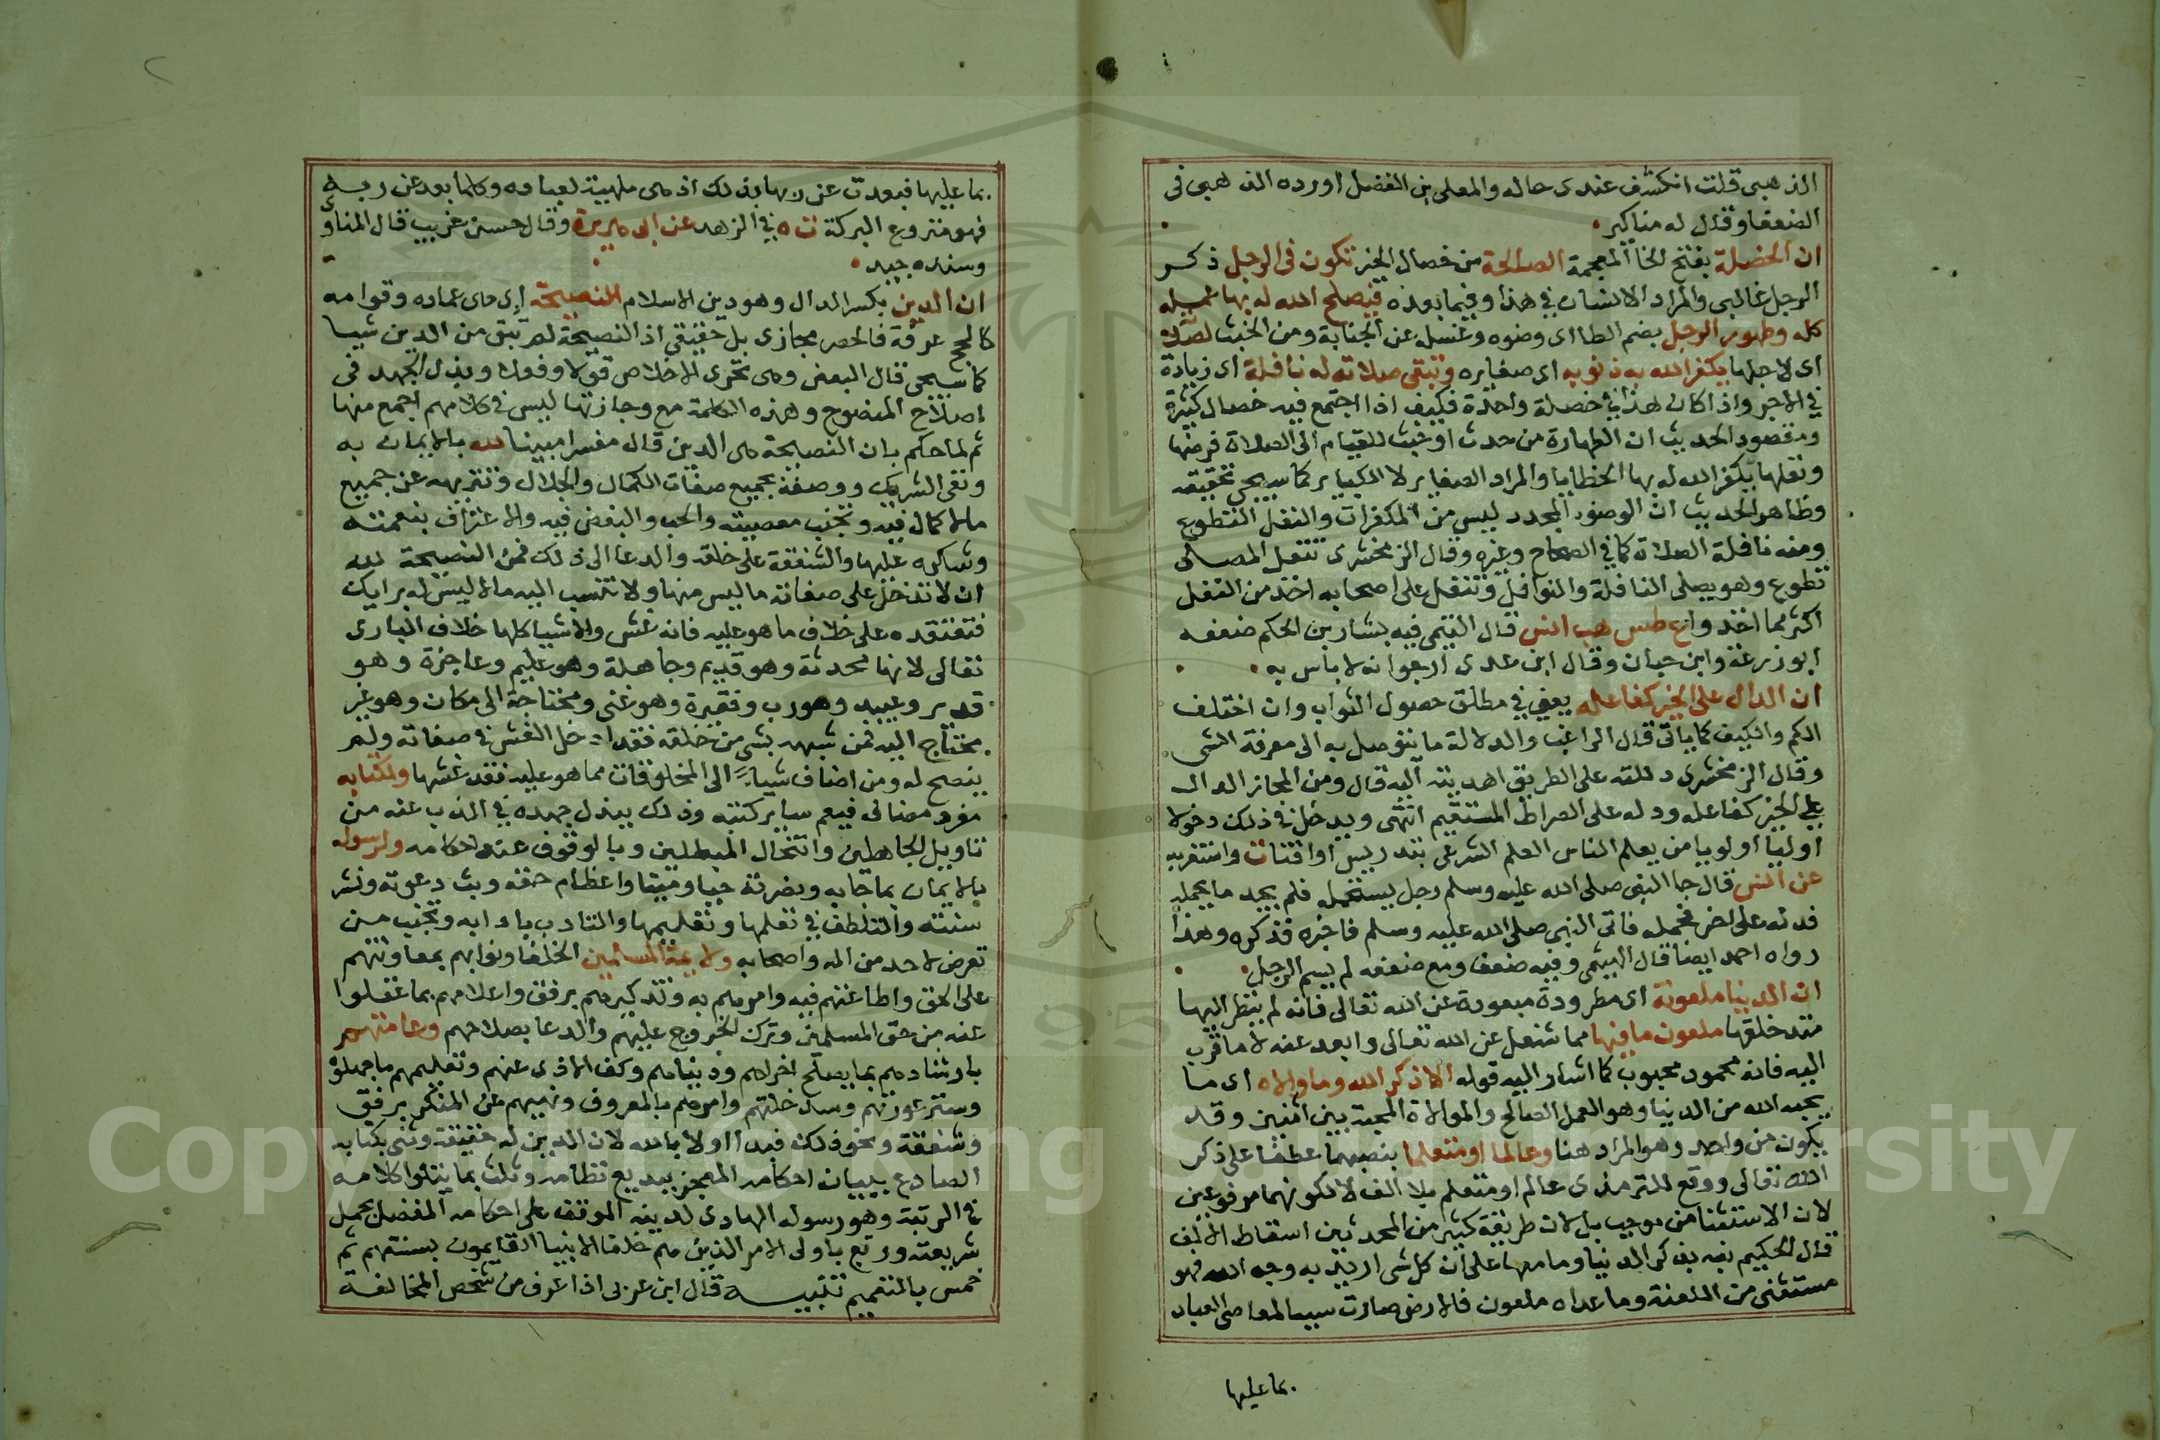 الذهبي قلت انكشف عندى حاله والمعلى بن الفضل اورده الذهبي فى
الضعفا وقال له مناكير
ان الخصلة بفتح الخا المعجمة الصالحة من خصال الخير تكون فى الرجل ذكر
الرجل غالبي والمراد الانسان في هذا وفيما بعده فيصلح الله له بها عمله
كله وطهور الرجل بضم الطا اى وضوه وغسله عن الجنابة ومن الخبث لصلاته
اى لاجلها يكفر الله به ذنوبه اى صغايره وتبقى صلاته له نافلة اى زيادة
في الاجر واذا كان هذا في خصلة واحدة فكيف اذا اجتمع فيه خصال كثيرة
ومقصود الحديث ان الطهارة من حدث او خبث للقيام الى الصلاة فرضها
ونفلها يكفر الله له بها الخطايا والمراد الصغاير لا الكباير كما سيجى تحقيقه
وظاهر الحديث ان الوضوء المجدد ليس من المكفرات والنفل التطوع
ومنه نافلة الصلاة كما في الصحاح وغيره وقال الزمخشرى تنفل المصلى
تطوع وهو يصلى النافلة والنوافل وتنفل على اصحابه اخذ من النفل
اكثر مما اخذوا ع طس هب انس قال الهيثمى فيه بشار بن الحكم ضعفه
ابو زرعة وابن حبان وقال ابن عدى ارجو انه لا باس به
ان الدال على الخير كفاعله يعنى في مطلق حصول الثواب وان اختلف
الكم والكيف كما ياتى قال الراغب والدلالة ما يتوصل به الى معرفة الشى
وقال الزمخشرى دللته على الطريق اهديته اليه قال ومن المجاز الدال
على الخير كفاعله ودله على الصراط المستقيم انتهى ويدخل في ذلك دخولا
اوليا اولويا من يعلم الناس العلم الشرعى بتدريس او افتا ت واستغربه
عن انس قال جا النبى صلى الله عليه وسلم رجل يستحمله فلم يجد ما يحمله
فدله على اخر فحمله فاتى النبي صلى الله عليه وسلم فاخبره فذكره وهذا
رواه احمد ايضا قال الهيثمى وفيه ضعف ومع ضعفه لم يسم الرجل
ان الدنيا ملعونة اى مطرودة مبعودة عن الله تعالى فانه لم ينظر اليها
منذ خلقها ملعون ما فيها مما شغل عن الله تعالى وابعد عنه لا ما قرب
اليه فانه محمود محبوب كما اشار اليه قوله الا ذكر الله وما والاه اى ما
يحبه الله من الدنيا وهو العمل الصالح والموالاة المحبة بين اثنين وقد
يكون من واحد وهو المراد هنا وعالما او متعلما بنصبهما عطفا على ذكر
الله تعالى ووقع للترمذى عالم او متعلم بلا الف لا لكونهما مرفوعين
لان الاستثنا من موجب بل لان طريقة كثير من المحدثين اسقاط الالف
قال الحكيم نبه بذكر الدنيا وما معها على ان كل شى اريد به وجه الله فهو
مستثنى من اللعنة وما عداه ملعون فالارض صارت سببا لمعاصى العباد
بما عليها
بما عليها فبعدت عن ربها بذلك اذ هى ملهية لعباده وكلما بعد عن ربه
فهو منزوع البركة ت ه في الزهد عن ابى هريرة وقال حسن غريب قال المناوى
وسنده جيد
ان الدين بكسر الدال وهو دين الاسلام النصيحة اى هى عماده وقوامه
كالحج عرفة فالحصر مجازى بل حقيقي اذ النصيحة لم تبق من الدين شيا
كما سيجى قال البعض وهى تحرى الاخلاص قولا وفعلا وبذل الجهد فى
اصلاح المنصوح وهذه الكلمة مع وجازتها ليس في كلامهم اجمع منها
ثم لما حكم بان النصيحة هى الدين قال مفسرا مبينا لله بالايمان به
ونفى الشريك ووصفه بجميع صفات الكمال والجلال وتنزيهه عن جميع
ما لا كمال فيه وتجنب معصيته والحب والبغض فيه والاعتراف بنعمته
وشكره عليها والشفقة على خلقه والدعا الى ذلك فمن النصيحة لله
ان لا تدخل على صفاته ما ليس منها ولا تنسب اليه ما لا ليس له برايك
فتعتقده على خلاف ما هو عليه فانه غش والاشيا كلها خلاف البارى
تعالى لانها محدثة وهو قديم وجاهلة وهو عليم وعاجزة وهو
قدير وعبيد وهو رب وفقيرة وهو غنى ومحتاجة الى مكان وهو غير
محتاج اليه فمن شبهه بشى من خلقه فقد ادخل الغش في صفاته ولم
ينصح له ومن اضاف شيا الى المخلوقات مما هو عليه فقد غشها ولكتابه
مفرد مضاف فيعم ساير كتبه وذلك ببذل جهده في الذب عنه من
تاويل الجاهلين وانتحال المبطلين وبالوقوف عند احكامه ولرسوله
بالايمان بما جا به ونصرته حيا وميتا واعظام حقه وبث دعوته ونشر
سنته والتلطف في تعلمها وتعليمها والتادب بادابه وتجنب من
تعرض لاحد من اله واصحابه ولايمة المسلمين الخلفا ونوابهم بمعاونتهم
على الحق واطاعتهم فيه وامرهم به وتذكيرهم برفق واعلامهم بما غفلوا
عنه من حق المسلمين وترك الخروج عليهم والدعا بصلاحهم وعامتهم
بارشادهم بما يصلح اخراهم ودنياهم وكف الاذى عنهم وتعليمهم ما جهلوا
وستر عورتهم وسد خلتهم وامرهم بالمعروف ونهيهم عن المنكر برفق
وشفقة ونحو ذلك فبدا اولا بالله لان الدين له حقيقة وثنى بكتابه
الصادع ببيان احكامه المعجز ببديع نظامه وثلث بما يتلو كلامه
في الرتبة وهو رسوله الهادى لدينه الموقف على احكامه المفصل بجمل
شريعته وربع باولى الامر الذين هم خلفا الانبيا القايمون بسنتهم ثم
خمس بالتعميم تنبيه قال ابن عربى اذا عرف من شخص المخالفة